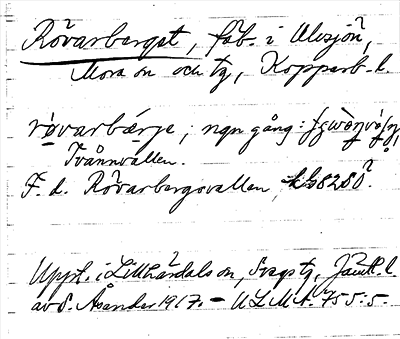 Rövarberget, fäb. i Ulvsjön,
Mora sn och tg, Kopparb. l.
rövarbærje, ngn gång:
Tvånnvallen.
F. d. Rövarbergsvallen
Uppt. i Lillhärdals sn, Svegs tg, Jämtl. l.
av S. Åsander 1917. – ULMA 755:5.